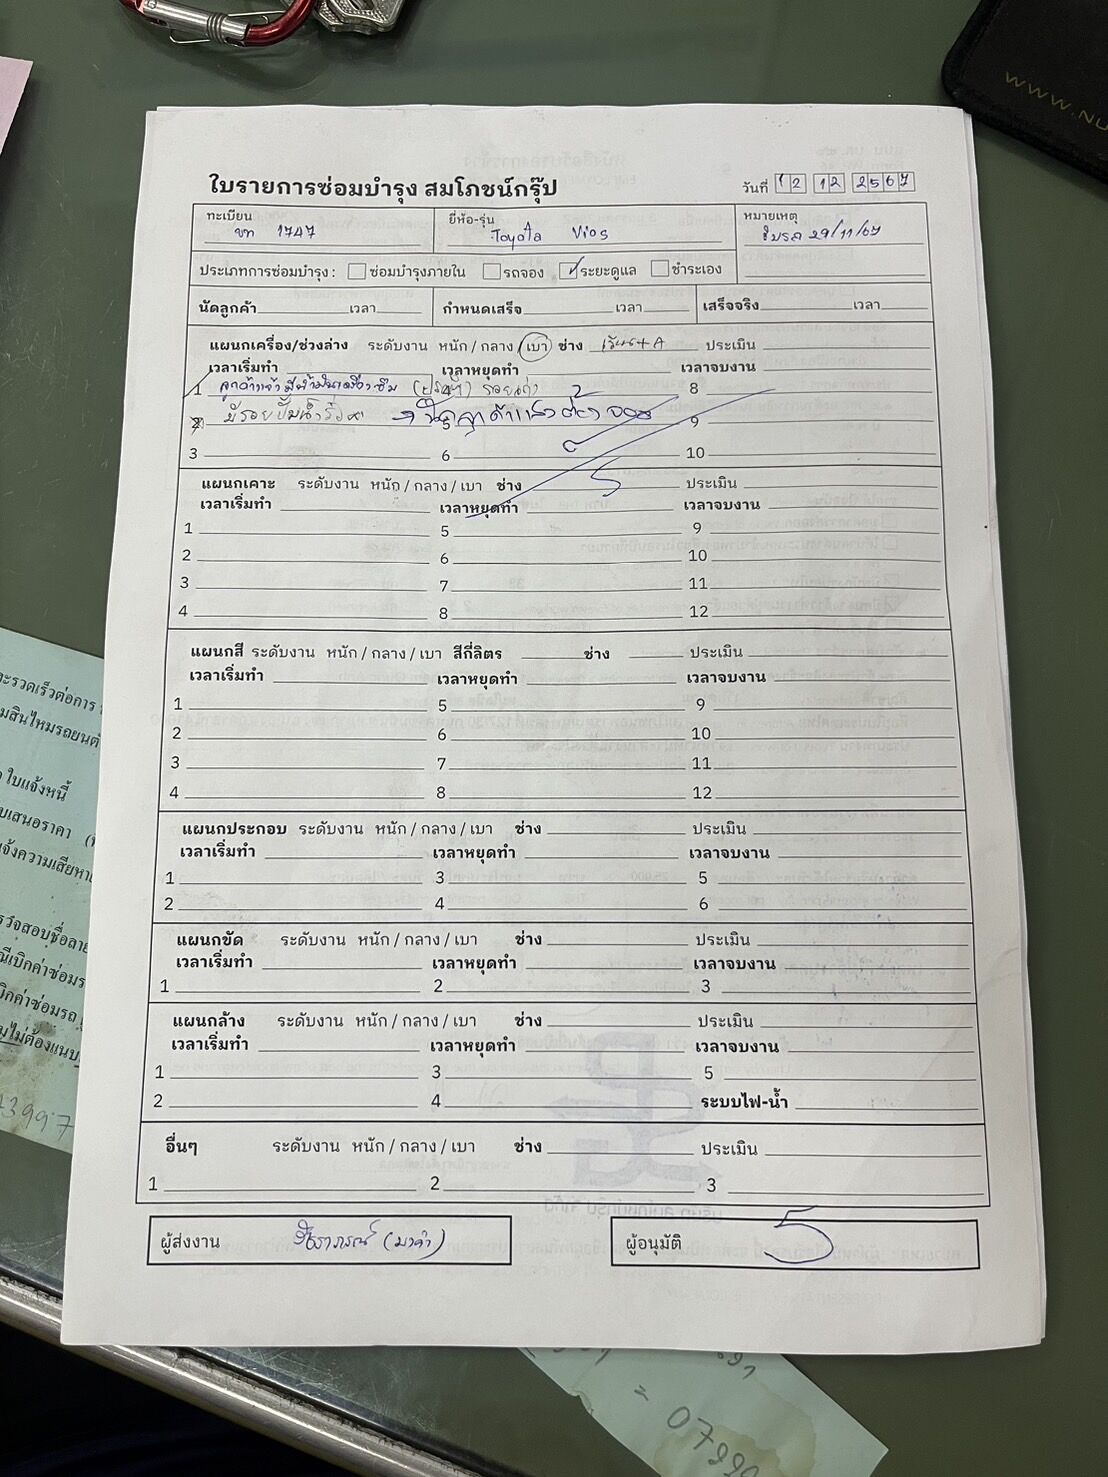 WWW.NU
ใบรายการซ่อมบำรุง สมโภชน์กรุ๊ป
วันที่ 12 12 2567
ทะเบียน 1747
ยี่ห้อ-รุ่น Toyota Vios
หมายเหตุ 29/11/67
ประเภทการซ่อมบำรุง : ซ่อมบำรุงภายใน รถจอง ระยะดูแล ชำระเอง
นัดลูกค้า เวลา กำหนดเสร็จ เวลา เสร็จจริง เวลา
แผนกเครื่อง/ช่วงล่าง ระดับงาน หนัก / กลาง / เบา ช่าง ประเมิน
เวลาเริ่มทำ เวลาหยุดทำ เวลาจบงาน
1 ลูกค้าแจ้ง มีน้ำมันเครื่องซึม 8
2 มีรอย 5 9
3 6 10
แผนกเคาะ ระดับงาน หนัก / กลาง / เบา ช่าง ประเมิน
เวลาเริ่มทำ เวลาหยุดทำ เวลาจบงาน
1 5 9
2 6 10
3 7 11
4 8 12
แผนกสี ระดับงาน หนัก / กลาง / เบา สีกี่ลิตร ช่าง ประเมิน
เวลาเริ่มทำ เวลาหยุดทำ เวลาจบงาน
1 5 9
2 6 10
3 7 11
4 8 12
แผนกประกอบ ระดับงาน หนัก / กลาง / เบา ช่าง ประเมิน
เวลาเริ่มทำ เวลาหยุดทำ เวลาจบงาน
1 3 5
2 4 6
แผนกขัด ระดับงาน หนัก / กลาง / เบา ช่าง ประเมิน
เวลาเริ่มทำ เวลาหยุดทำ เวลาจบงาน
1 2 3
แผนกล้าง ระดับงาน หนัก / กลาง / เบา ช่าง ประเมิน
เวลาเริ่มทำ เวลาหยุดทำ เวลาจบงาน
1 3 5
2 4 ระบบไฟ-น้ำ
อื่นๆ ระดับงาน หนัก / กลาง / เบา ช่าง ประเมิน
1 2 3
ผู้ส่งงาน
ผู้อนุมัติ
ะรวดเร็วต่อการ
มสินไหมรถยนต์
ใบแจ้งหนี้
บเสนอราคา
จ้งความเสียหาย
รวจสอบชื่อลาย
ณีเบิกค่าซ่อมร
บิกค่าซ่อมรถ
มไม่ต้องแนบ
3997
= 0799